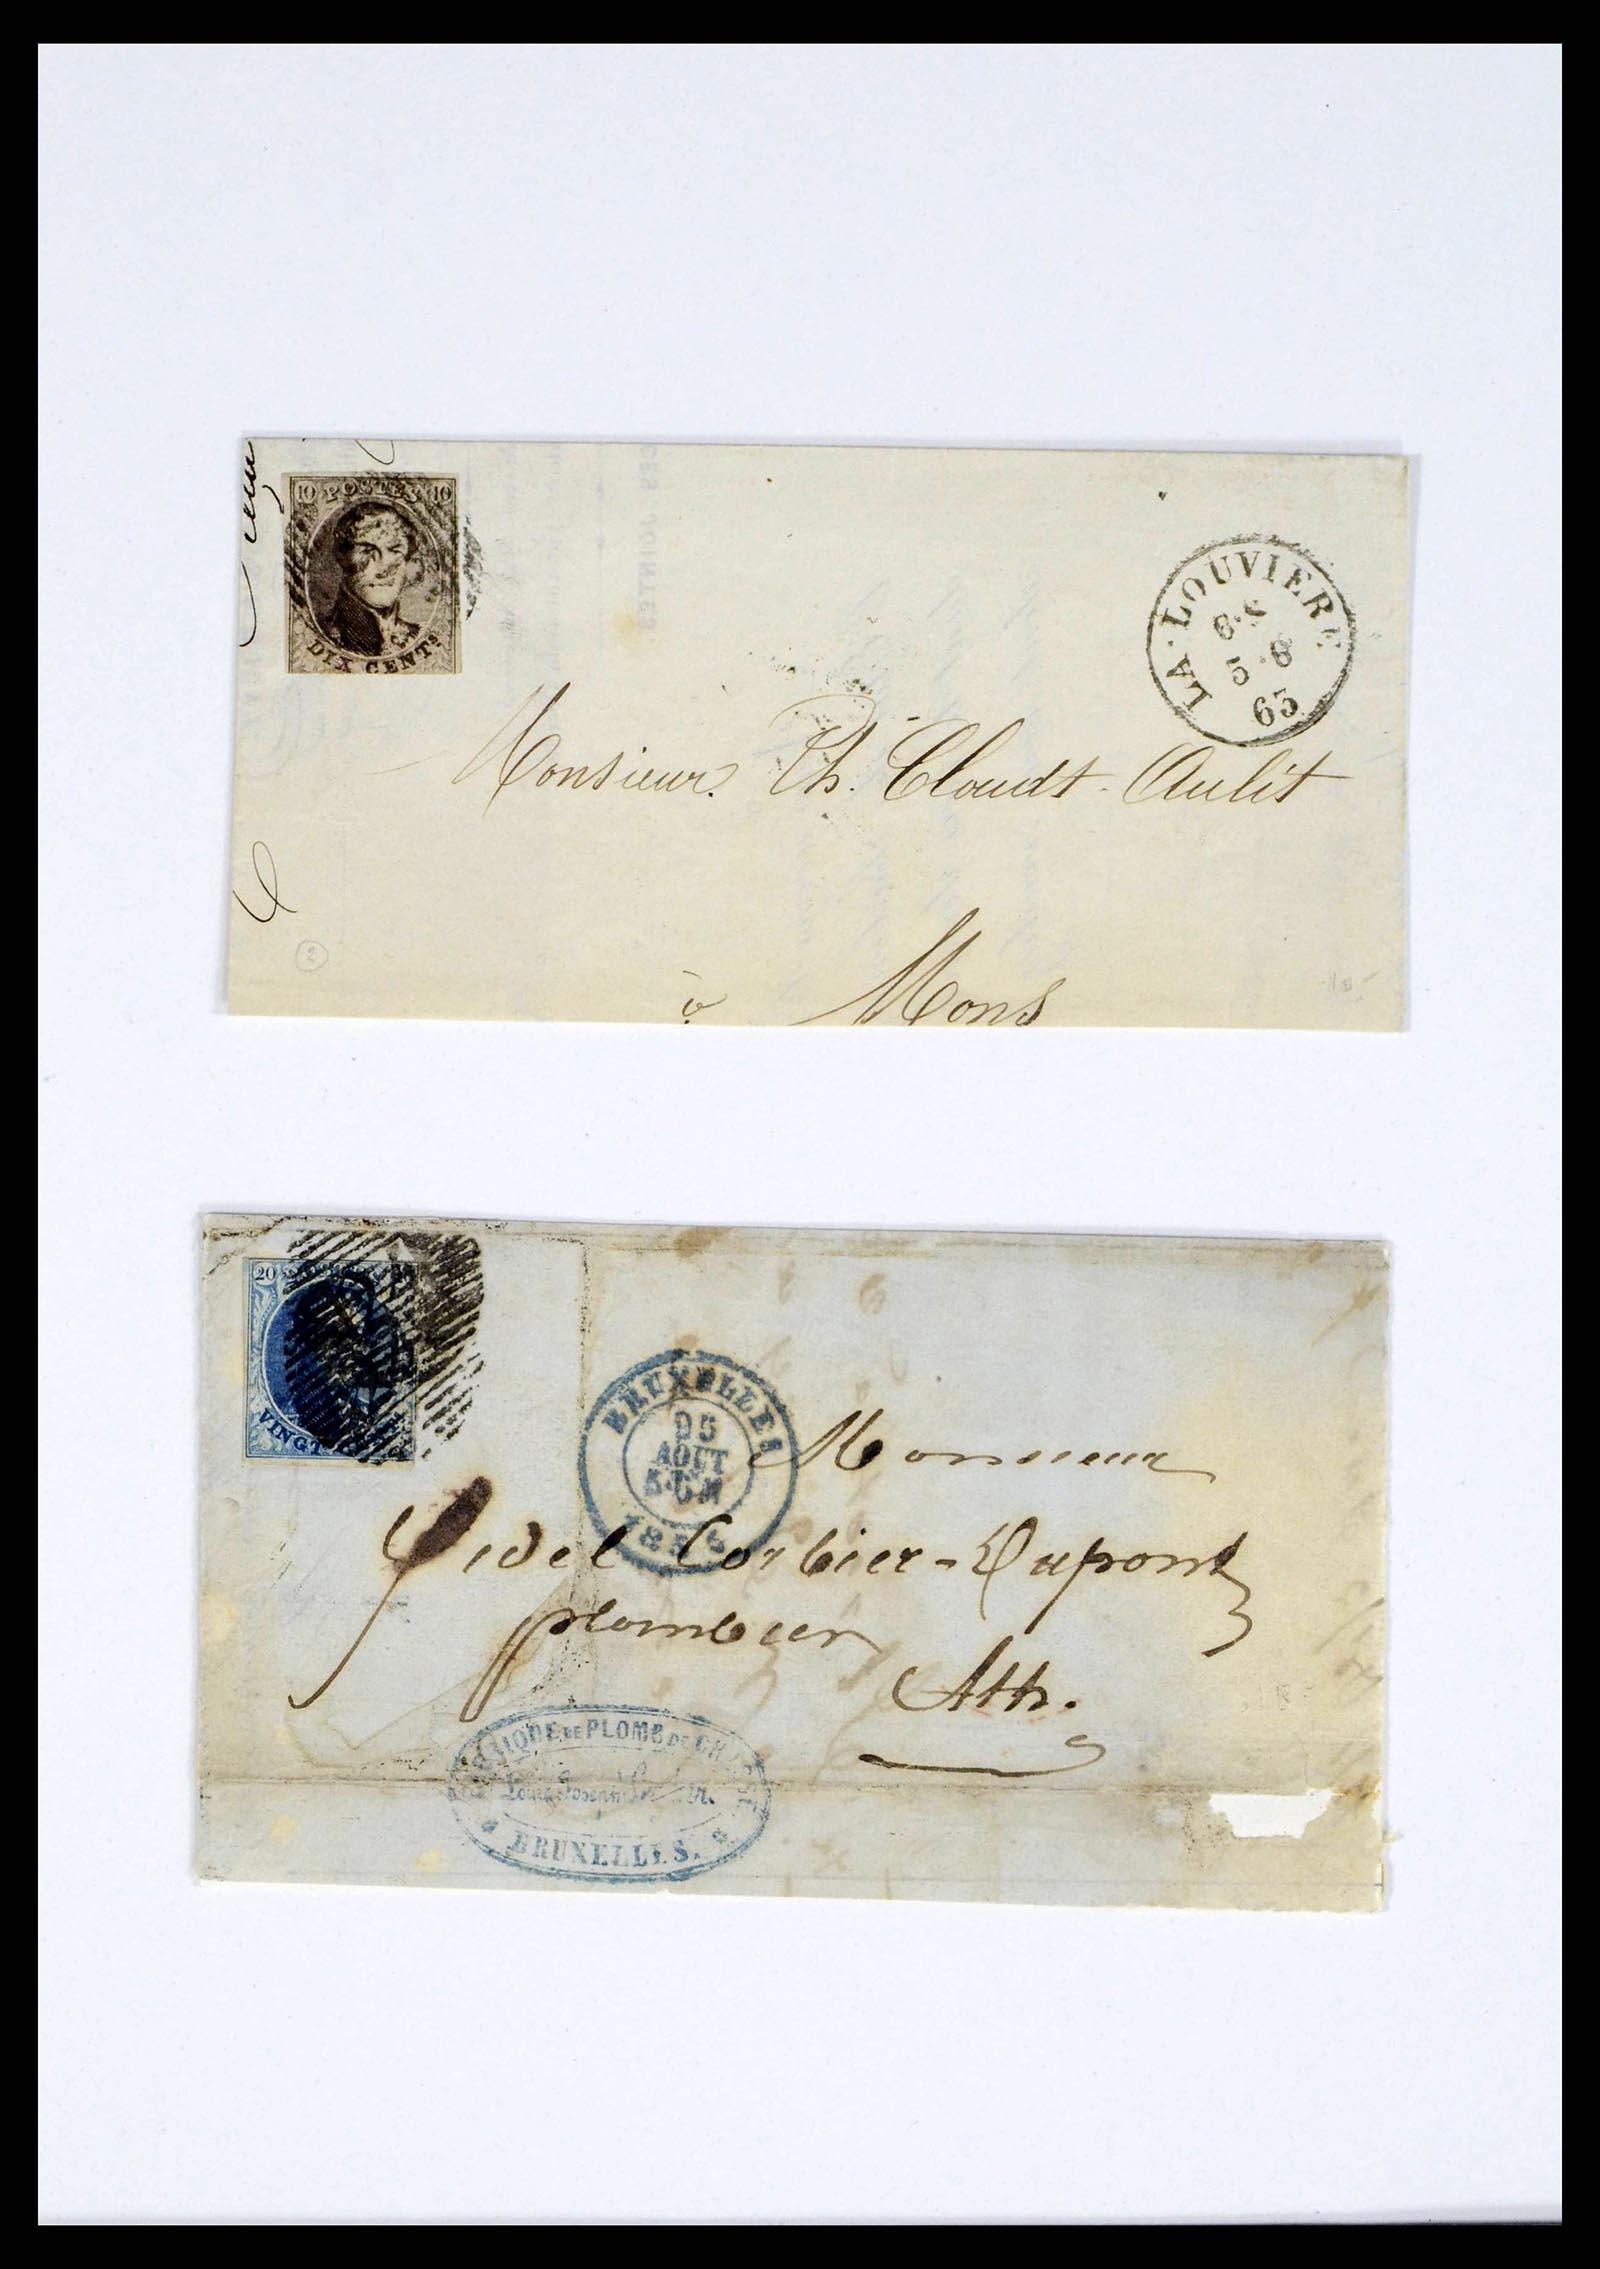 10 POSTES 10
DIX CENTS
LA LOUVIERE
5 8
65
Monsieur Th. Cloudt-Aulit
à Mons
2
20
VINGT
BRUXELLES
AOUT
Monsieur
Fidel Corbier-Dupont
plombier
Ath.
FABRIQUE DE PLOMB DE CHASSE
Louis Joseph
BRUXELLES.